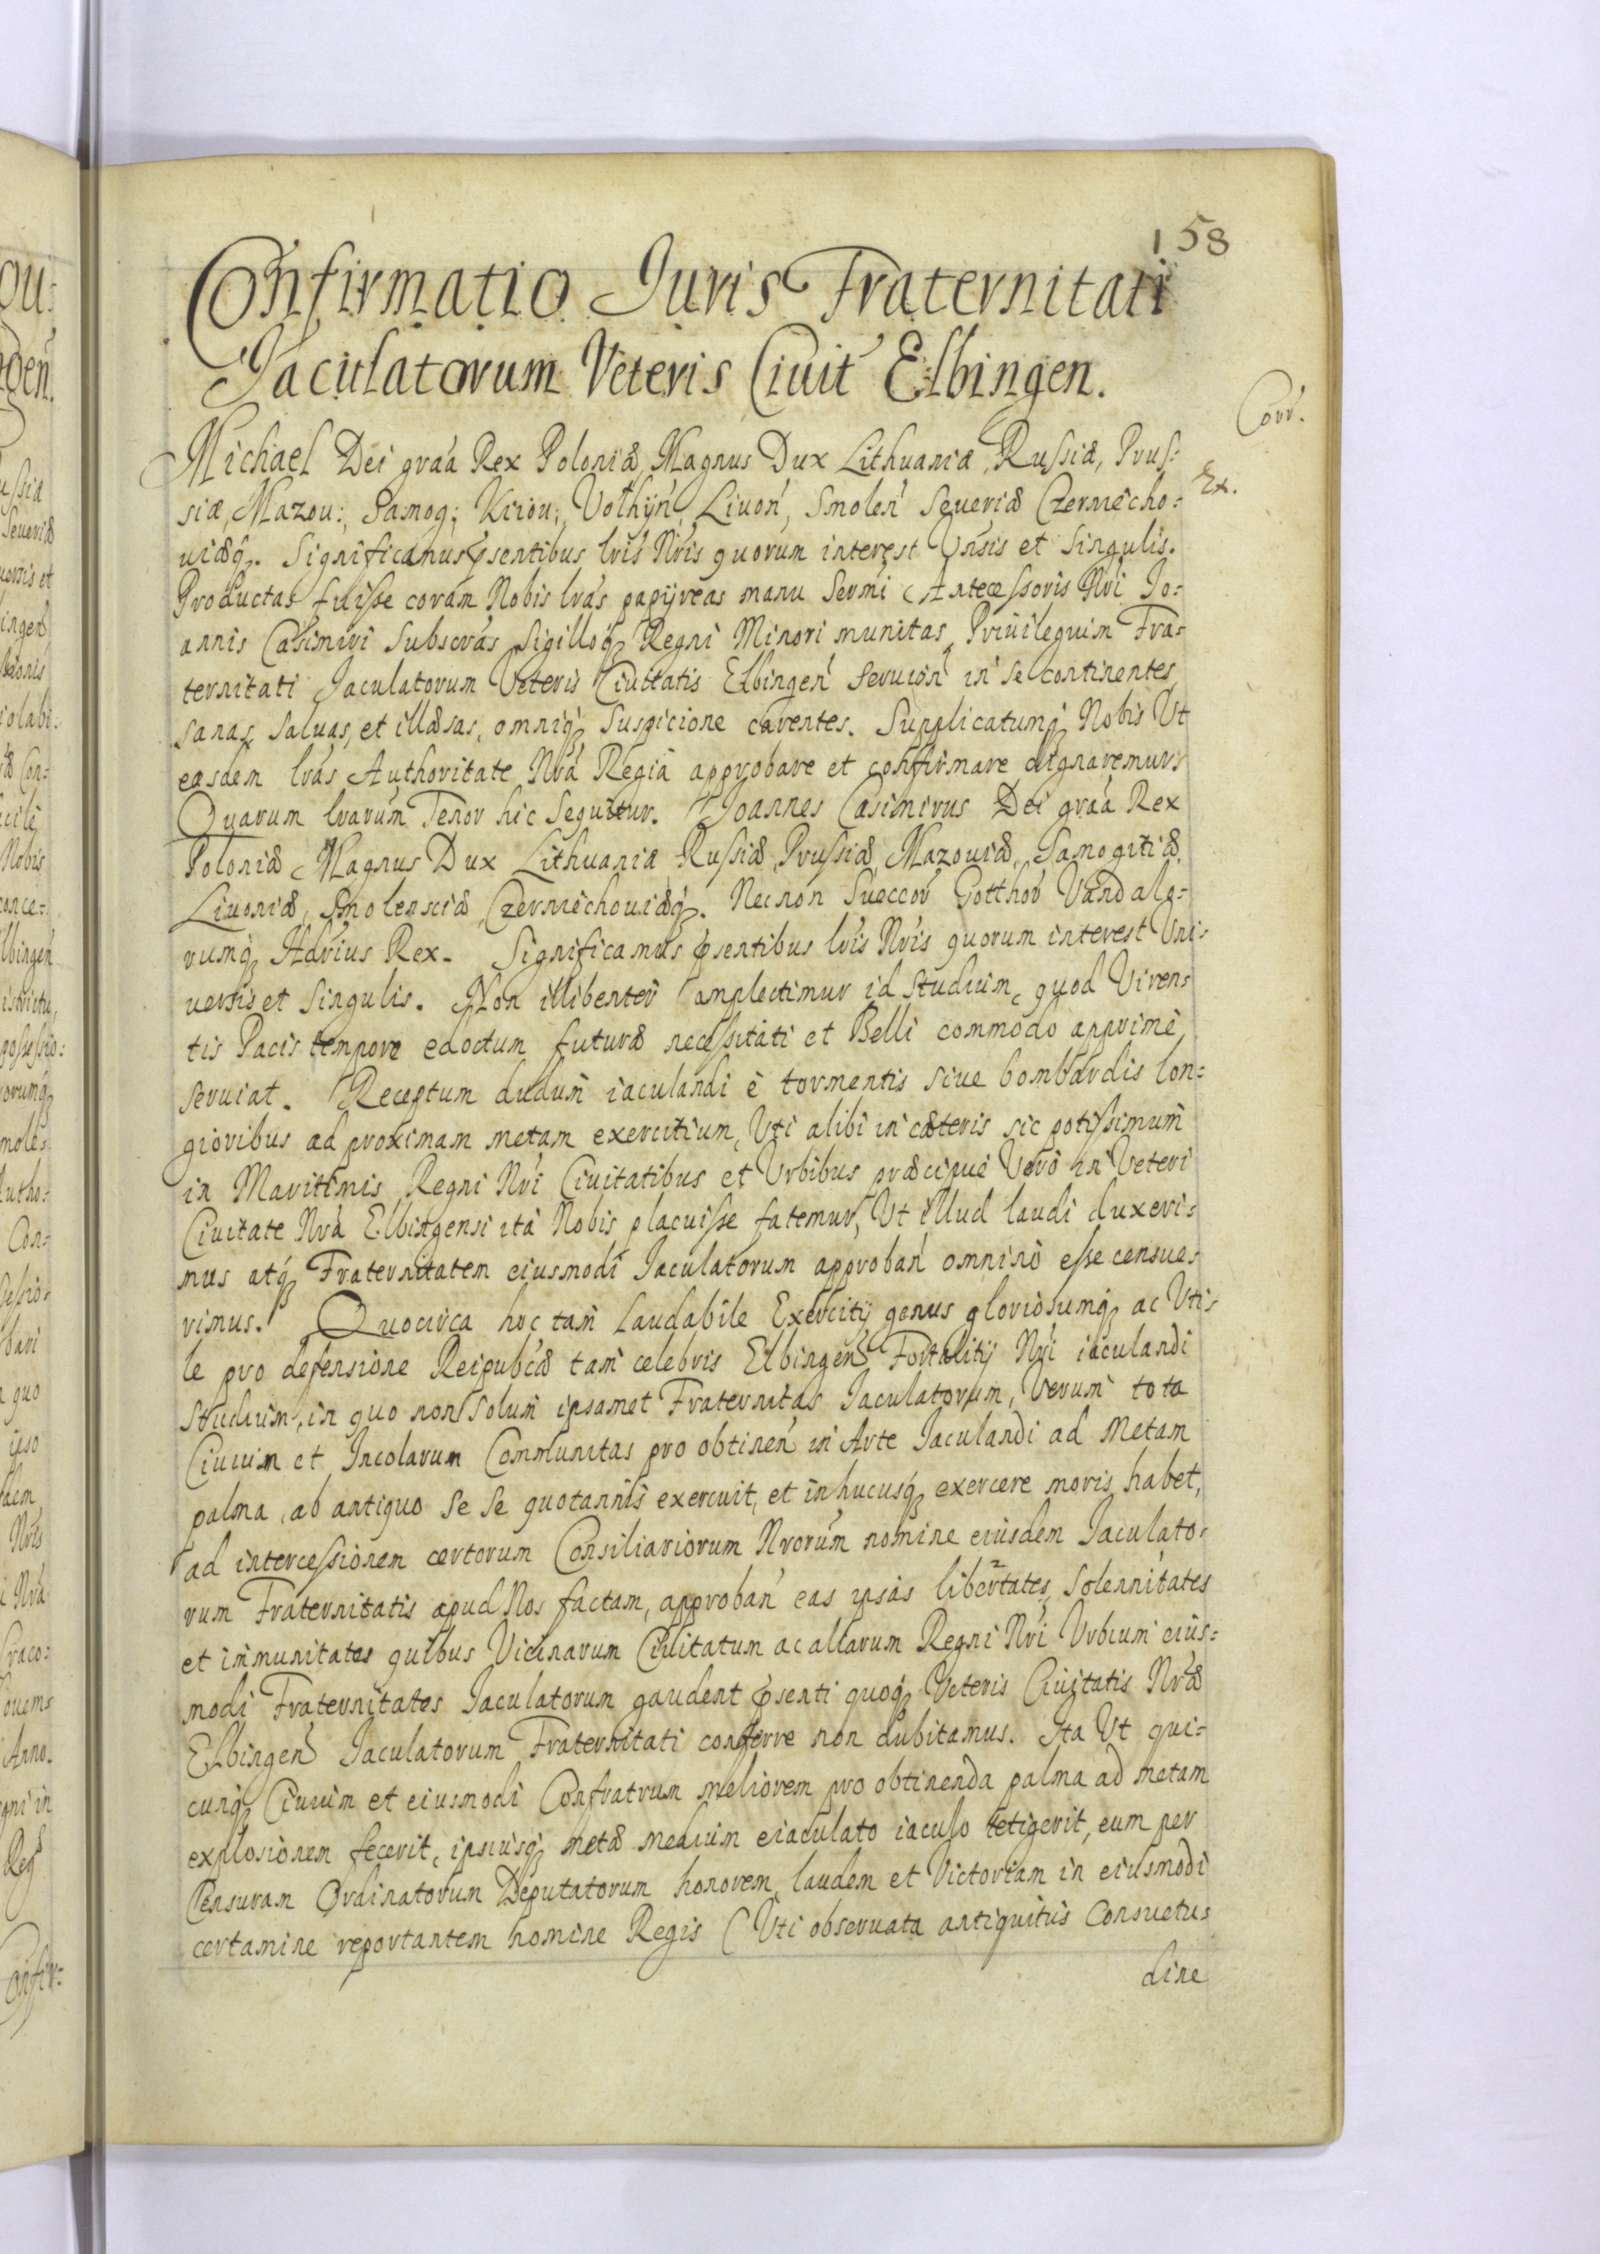 158
Confirmatio Juris Fraternitati
Jaculatorum Veteris Civit Elbingen.
Corr.
Ex.
Michael Dei gra'a Rex Poloniæ, Magnus Dux Lithuaniæ, Russiæ, Prus=
siæ, Mazou:, Samog:, Kiiou:, Volhÿn', Liuon', Smolen' Seueriæ Czerniecho=
uiæq3. Significamus p̃sentibus lris Nris quorum interest Vnsis et Singulis.
Productas fuisse coram Nobis lras papÿreas manu Sermi Antecessoris Nri Jo=
annis Casimiri Subscras Sigilloq3 Regni Minori munitas, Priuileguim Fra=
ternitati Jaculatorum Veteris Ciuitatis Elbingen' Seruien' in se continentes
sanas, saluas, et illæsas, omniq3 Suspicione carentes. Supplicatumq3 Nobis Vt
easdem lras Authoritate Nra Regia approbare et confirmare dignaremur
Quarum lrarum Tenor hic Sequitur. Joannes Casimirus Dei gra'a Rex
Poloniæ Magnus Dux Lithuaniæ Russiæ, Prussiæ, Mazouiæ, Samogitiæ,
Liuoniæ, Smolensciæ Czerniechouiæq3. Necnon Sueccor' Gotthor' Vandalo=
rumq3 Hærius Rex. Significamus p̃sentibus lris Nris quorum interest Vni=
uersis et Singulis. Non illibenter amplectimur id Studium, quod Viren=
tis Pacis tempore edoctum futuræ necessitati et Belli commodo apprimè
seruiat. Receptum dudum iaculandi è tormentis siue bombardis lon=
gioribus ad proximam metam exercitium, Vti alibi in cæteris sic potissimum
in Maritimis Regni Nri Ciuitatibus et Vrbibus præcipuè Verò in Veteri
Ciuitate Nra Elbingensi ita Nobis placuisse fatemur, Vt illud laudi duxeri=
mus atq3 Fraternitatem eiusmodi Jaculatorum approban' omninò esse censue=
rimus. Quocirca hoc tam Laudabile Exercitÿ genus gloriosumq3 ac Vti=
le pro defensione Reipubcæ tam celebris Elbingen' Fortalitÿ Nri iaculandi
Studium, in quo non solum ipsamet Fraternitas Jaculatorum, Verum tota
Ciuium et Incolarum Communitas pro obtinen' in Arte Jaculandi ad Metam
palma, ab antiquo se se quotannis exercuit, et in hucusq3 exercere moris habet,
ad intercessionem certorum Consiliariorum Nrorum nomine eiusdem Jaculato=
rum Fraternitatis apud Nos factam, approban' eas ipsas libertates, Solennitates
et immunitates quibus Vicinarum Ciuitatum ac aliarum Regni Nri Vrbium eius=
modi Fraternitates Jaculatorum gaudent p̃senti quoq3 Veteris Ciuitatis Nræ
Elbingen' Jaculatorum Fraternitati conferre non dubitamus. Ita Vt qui=
cunq3 Ciuium et eiusmodi Confratrum meliorem pro obtinenda palma ad metam
explosionem fecerit, ipsiusq3 metæ medium eiaculato iaculo tetigerit, eum per
Censuram Ordinatorum Deputatorum honorem, laudem et Victoriam in eiusmodi
certamine reportantem nomine Regis (Vti obseruata antiquitus Consuetu=
dine